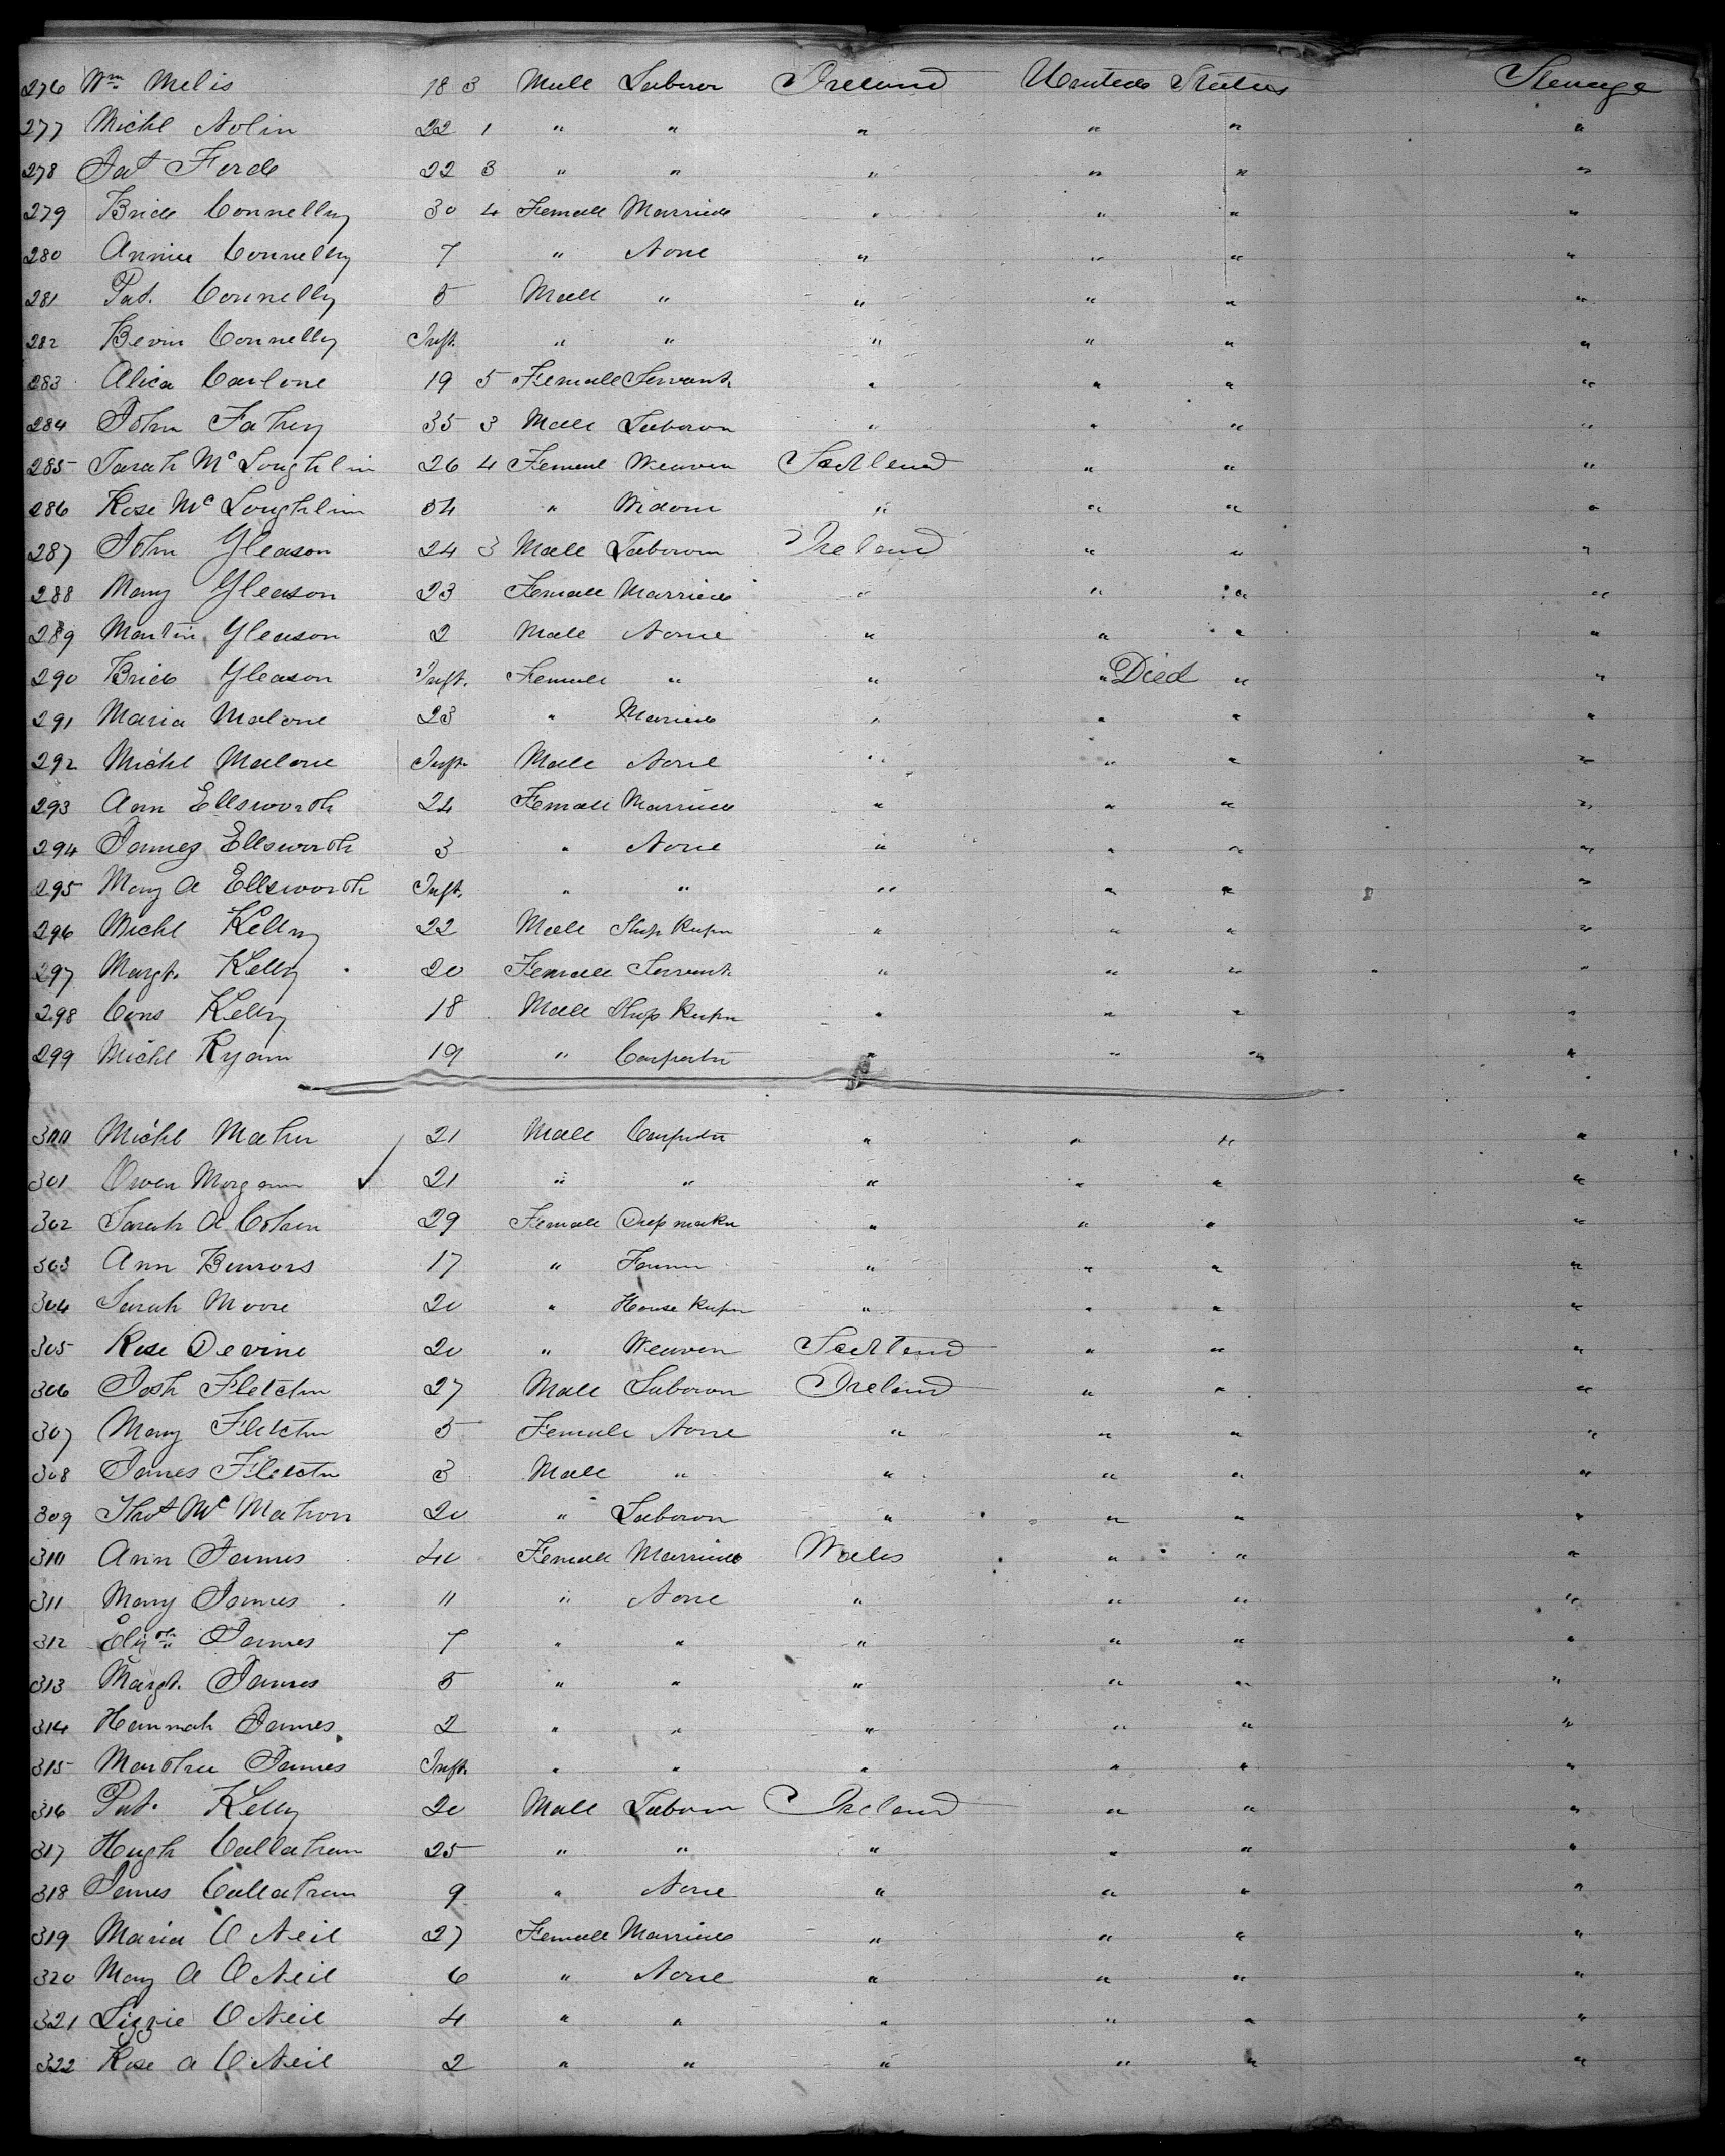 276 Wm. Melis 18 3 Male Laborer Ireland United States Steerage
277 Michl Nolin 22 1 " " " " " "
278 Pat Ford 22 3 " " " " " "
279 Brid Connelly 30 4 Female Married " " " "
280 Annie Connelly 7 " None " " " "
281 Pat. Connelly 5 Male " " " " "
282 Connelly Inft. " " " " " "
283 Alica Carlone 19 5 Female Servant " " " "
284 John Fahey 35 3 Male Laborer " " " "
285 Sarah McLoughlin 26 4 Female Weaver Scotland " " "
286 Rose McLoughlin 54 " Widow " " " "
287 John Gleason 24 3 Male Laborer Ireland " " "
288 Mary Gleason 23 Female Married " " " "
289 Martin Gleason 2 Male None " " " "
290 Brid Gleason Inft. Female " " " Died " "
291 Maria Malone 23 " Married " " " "
292 Michl Malone Inft. Male None " " " "
293 Ann Ellsworth 24 Female Married " " " "
294 James Ellsworth 3 " None " " " "
295 Mary A Ellsworth Inft. " " " " " "
296 Michl Kelly 22 Male Shop Kupr " " " "
297 Margt. Kelly 20 Female Servant " " " "
298 Cons Kelly 18 Male Shop Kupr " " " "
299 Michl Ryan 19 " Carpentr " " " "
300 Michl Maher 21 Male Carpentr " " " "
301 Owen Morgan ✓ 21 " " " " " "
302 Sarah A Cohen 29 Female Dressmaker " " " "
303 Ann 17 " " " " "
304 Sarah Moore 20 " House Kupr " " " "
305 Rose Devine 20 " Weaver Scotland " " "
306 Josh Fletcher 27 Male Laborer Ireland " " "
307 Mary Fletcher 5 Female None " " " "
308 James Fletcher 3 Male " " " " "
309 Thos McMahon 20 " Laborer " " " "
310 Ann James 40 Female Married Wales " " "
311 Mary James 11 " None " " " "
312 Elizth James 7 " " " " " "
313 Margt. James 5 " " " " " "
314 Hannah James 2 " " " " " "
315 Martha James Inft. " " " " " "
316 Pat. Kelly 20 Male Laborer Ireland " " "
317 Hugh Callahan 25 " " " " " "
318 James Callahan 9 " None " " " "
319 Maria O Neil 27 Female Married " " " "
320 Mary A O Neil 6 " None " " " "
321 Lizzie O Neil 4 " " " " " "
322 Rose A O Neil 2 " " " " " "